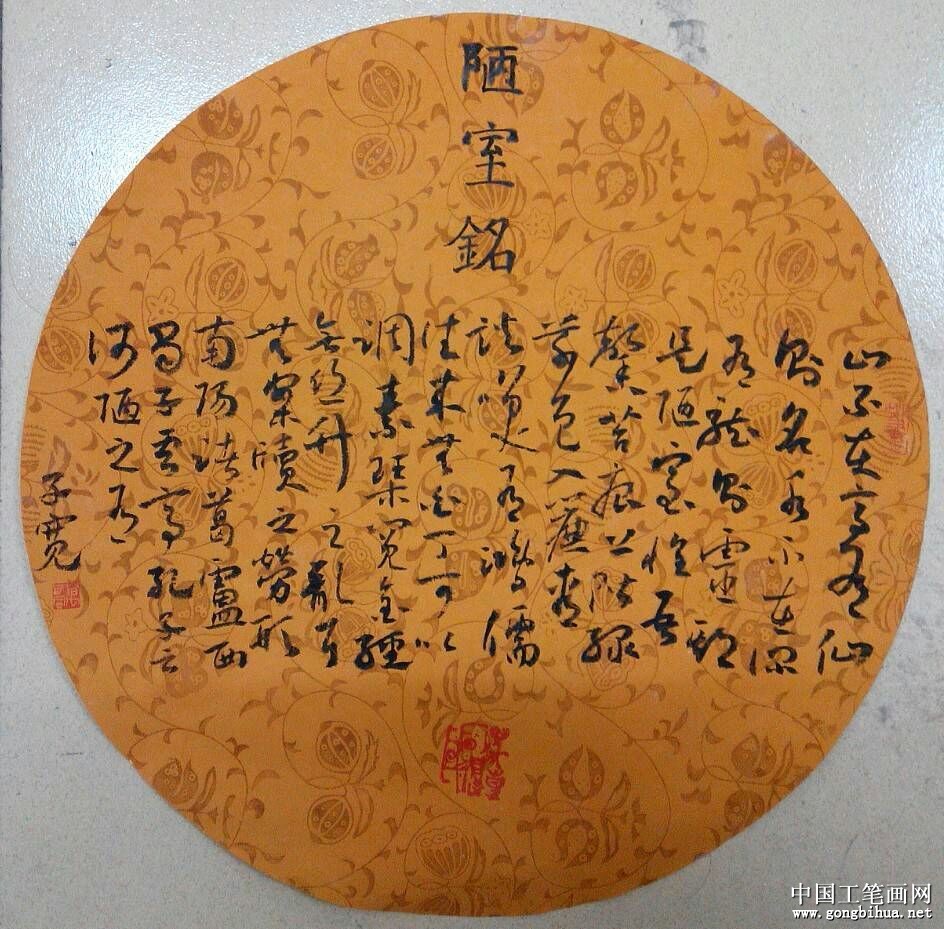 陋室銘
山不在高有仙
則名水不在深
有龍則靈斯
是陋室惟吾
馨苔痕上階綠
草色入簾青
談笑有鴻儒
往來無白丁可以
調素琴閱金經
無絲竹之亂耳
無案牘之勞形
南陽諸葛廬西
蜀子雲亭孔子云
何陋之有
子寬
中国工笔画网
www.gongbihua.net